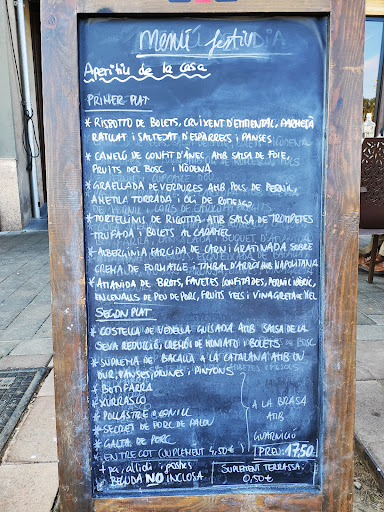 Menú festiu
Aperitiu de la casa
PRIMER PLAT
* RISOTTO DE BOLETS, CRUIXENT D'EMMENTAL, PARMESÀ
RATLLAT I SALTEJAT D'ESPÀRRECS I PANSES
* CANELÓ DE CONFIT D'ÀNEC AMB SALSA DE FOIE,
FRUITS DEL BOSC I MÓDENA
* GRAELLADA DE VERDURES AMB POLS DE PERNIL,
AMETLLA TORRADA I OLI DE
* TORTEL·LINIS DE RICOTTA AMB SALSA DE TROMPETES
TRUFADA I BOLETS AL CARAMEL
* ALBERGÍNIA FARCIDA DE CARN I GRATINADA SOBRE
CREMA DE FORMATGE I TIMBAL D'ARRÒS AMB NAPOLITANA
* AMANIDA DE BROTS, FAVETES CONFITADES, PERNIL IBÈRIC,
ENCENALLS DE PEU DE PORC, FRUITS SECS I VINAGRETA DE MEL
SEGON PLAT
* COSTELLA DE VEDELLA GUISADA AMB SALSA DE LA
SEVA REDUCCIÓ, CREMÓS DE MONIATO I BOLETS
* SUPREMA DE BACALLÀ A LA CATALANA AMB OU
DUR, PANSES, PRUNES I PINYONS
* BOTIFARRA
* XURRASCO
* POLLASTRE O CONILL
* SECRET DE PORC DE PALOU
* GALTA DE PORC
* ENTRECOT (SUPLEMENT 4,50€)
A LA BRASA
AMB
GUARNICIÓ
+ pa, allioli i postres
* BEGUDA NO INCLOSA
PREU: 17,50
SUPLEMENT TERRASSA:
0,50€